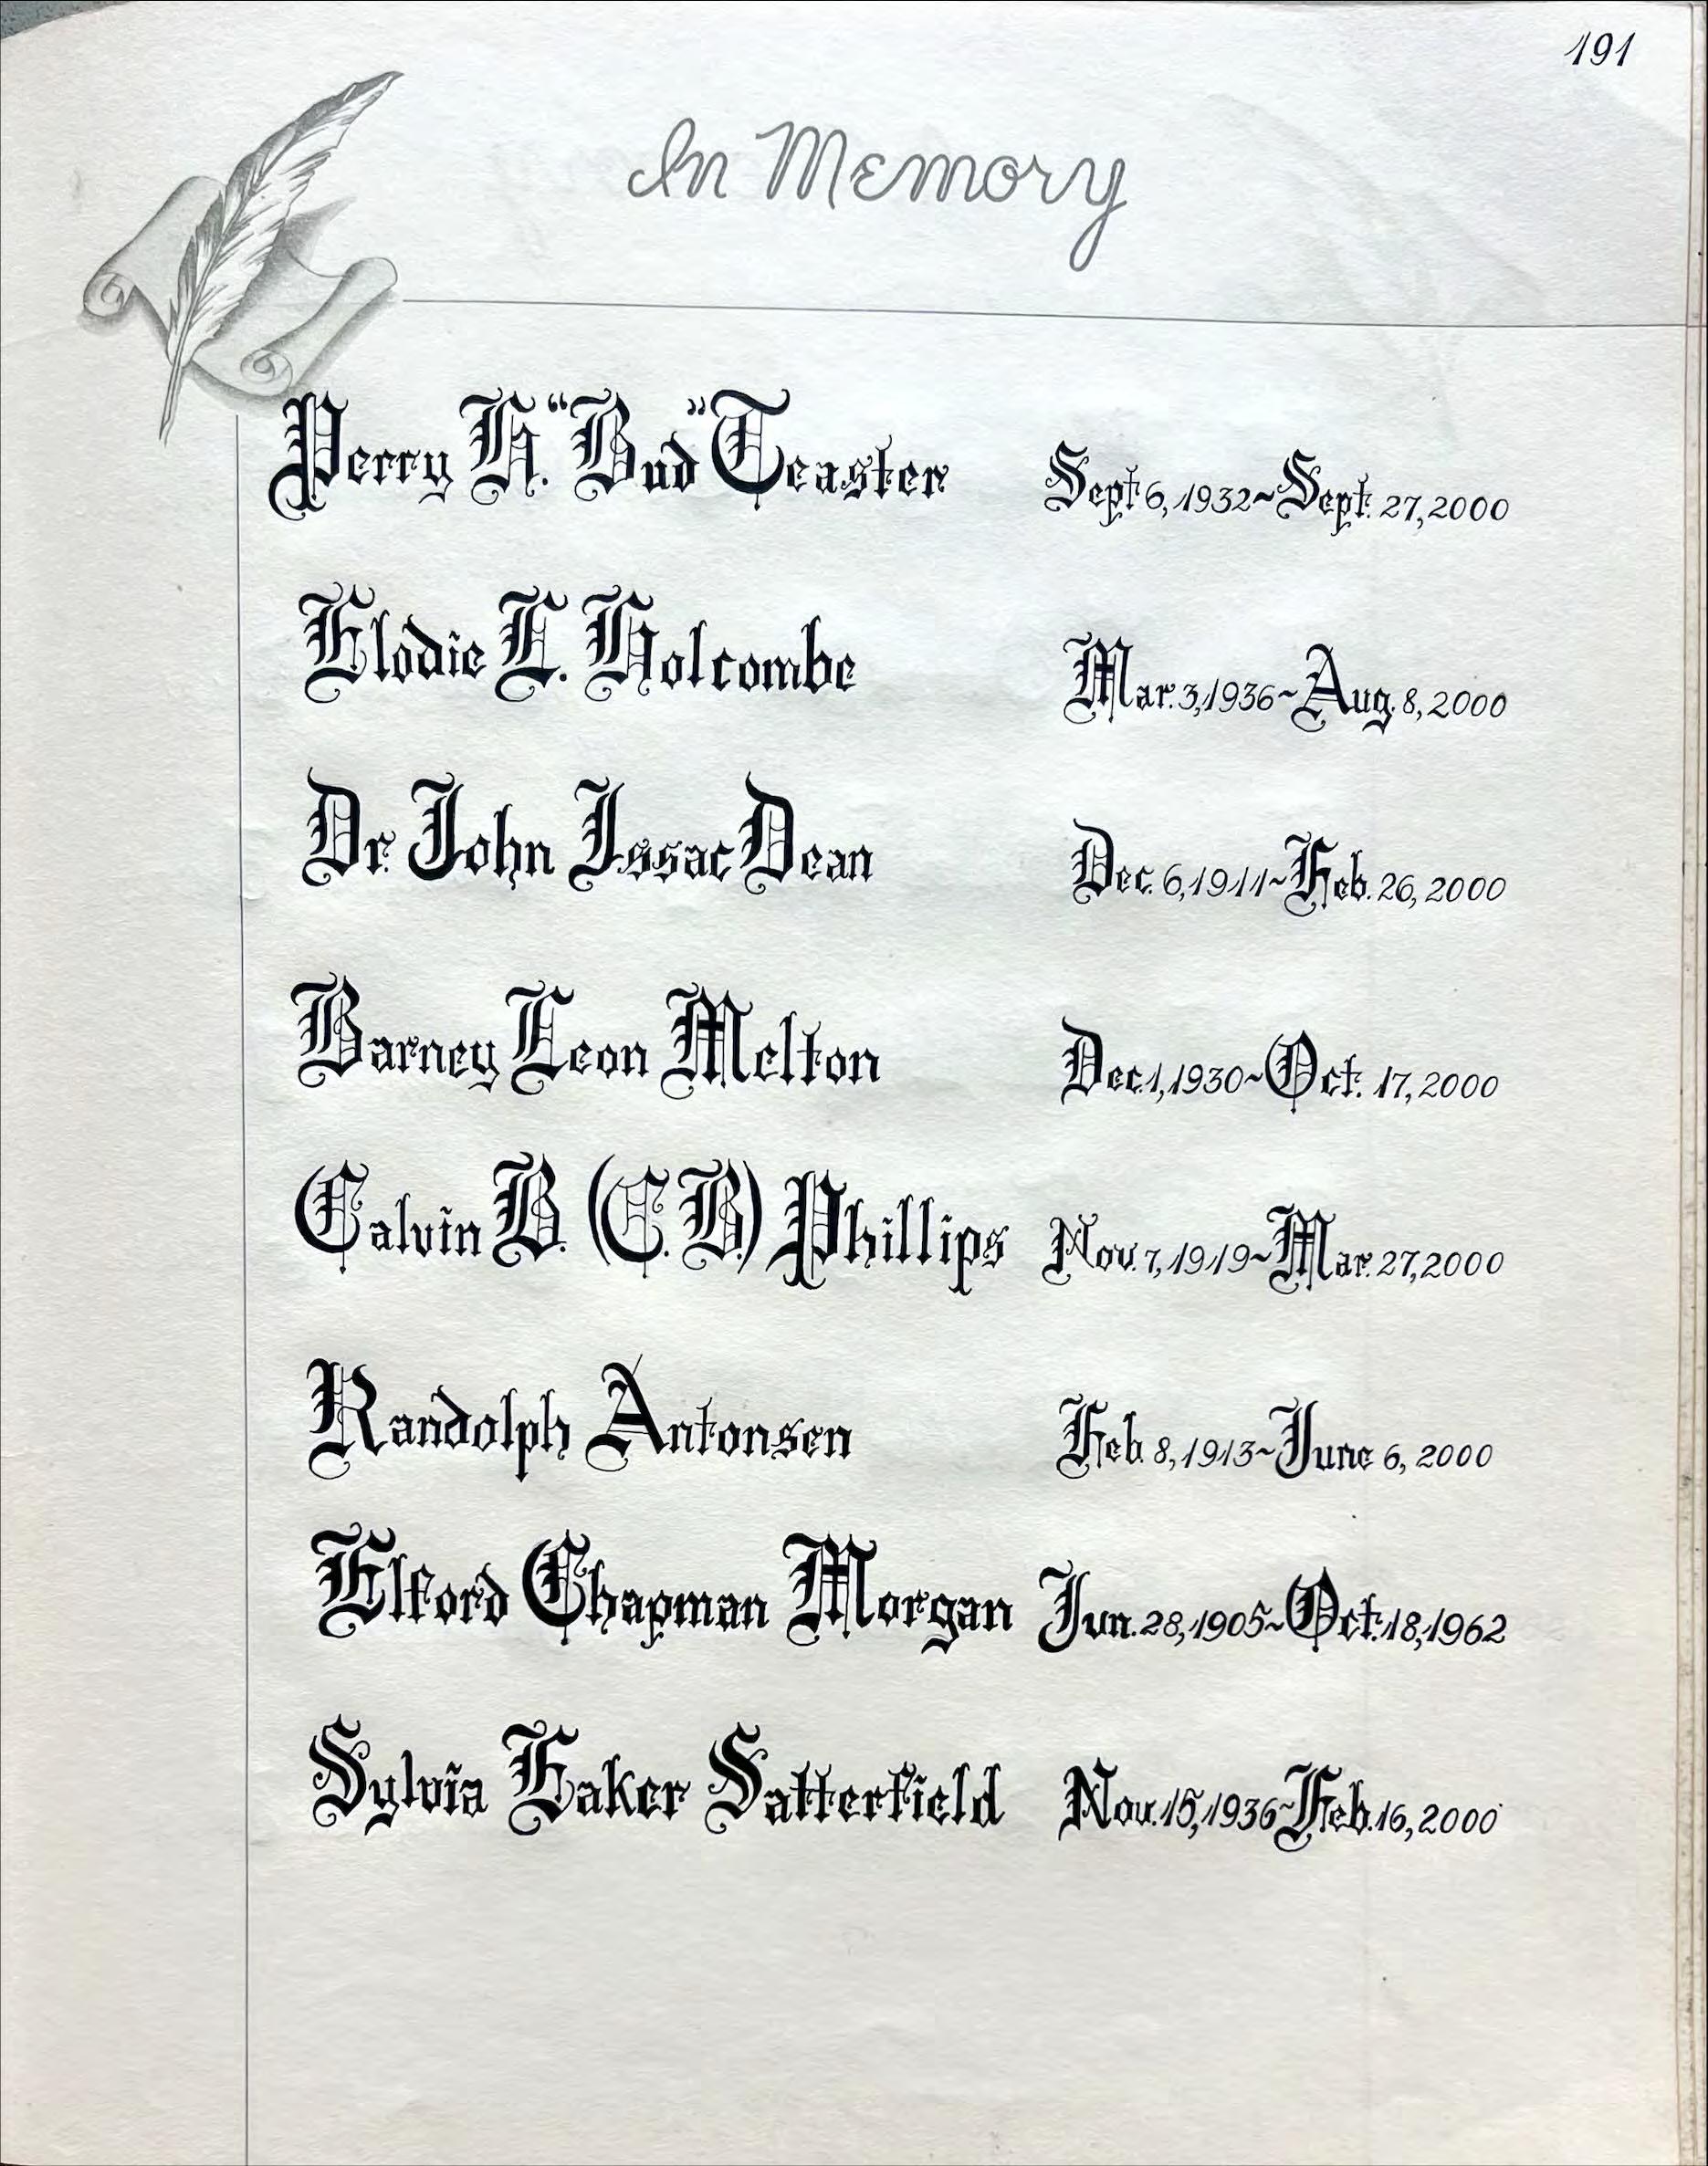 191
In Memory
Perry H. "Bud" Teaster Sept 6, 1932~Sept. 27, 2000
Elodie L. Holcombe Mar. 3, 1936~Aug. 8, 2000
Dr. John Issac Dean Dec. 6, 1911~Feb. 26, 2000
Barney Leon Melton Dec. 1, 1930~Oct. 17, 2000
Calvin B. (C.B.) Phillips Nov. 7, 1919~Mar. 27, 2000
Randolph Antonsen Feb. 8, 1913~June 6, 2000
Elford Chapman Morgan Jun. 28, 1905~Oct. 18, 1962
Sylvia Eaker Satterfield Nov. 15, 1936~Feb. 16, 2000